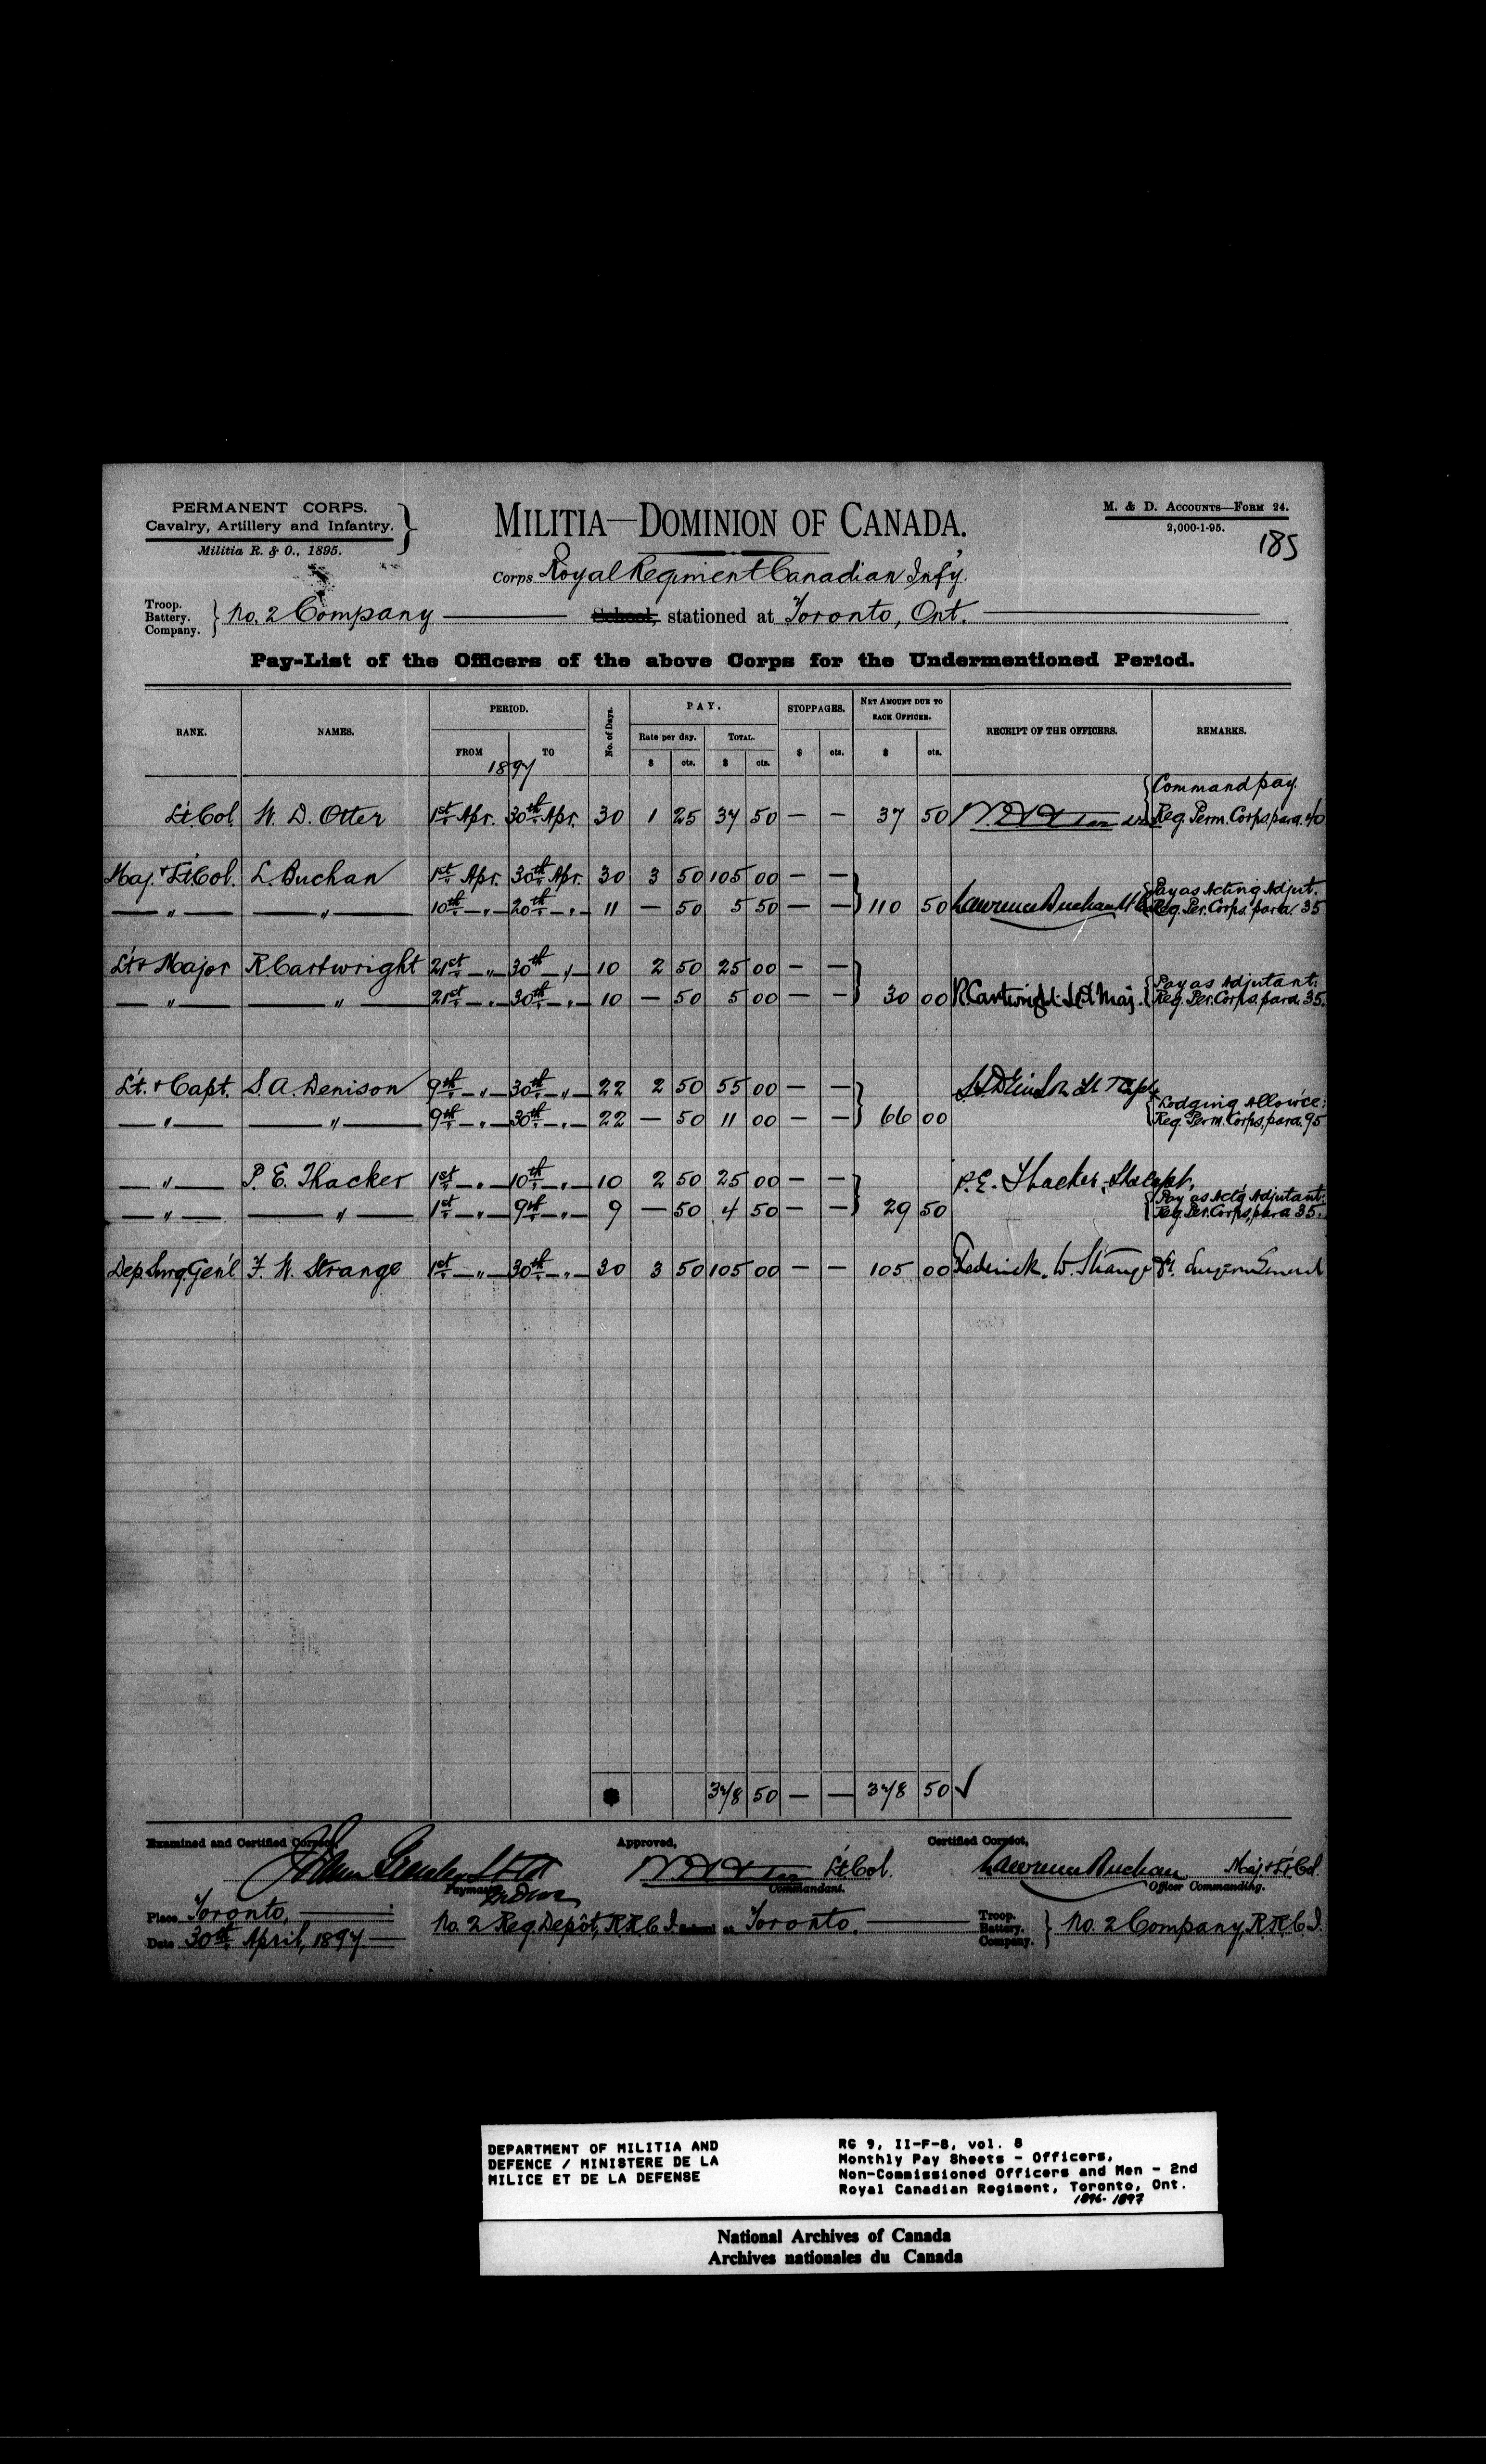 PERMANENT CORPS.
Cavalry, Artillery and Infantry.
Militia R. & O., 1895.
MILITIA—DOMINION OF CANADA.
M. & D. ACCOUNTS—FORM 24.
2,000-1-95.
185
Corps Royal Regiment Canadian Inf'y.
Troop. Battery. Company. } No. 2 Company School, stationed at Toronto, Ont.
Pay-List of the Officers of the above Corps for the Undermentioned Period.
RANK. NAMES. PERIOD. No. of Days. PAY. STOPPAGES. NET AMOUNT DUE TO EACH OFFICER. RECEIPT OF THE OFFICERS. REMARKS.
FROM TO Rate per day. TOTAL. $ cts. $ cts.
1897 $ cts. $ cts.
Lt. Col. W. D. Otter 1st Apr. 30th Apr. 30 1 25 37 50 — — 37 50 W D Otter { Command pay. Reg. Perm. Corps, para. 40
Maj. & Lt. Col. L. Buchan 1st Apr. 30th Apr. 30 3 50 105 00 — —
— " — — " — 10th — " — 20th — " — 11 — 50 5 50 — — } 110 50 Lawrence Buchan { Pay as Acting Adjut. Reg. Per. Corps. para. 35
Lt & Major R Cartwright 21st — " — 30th — " — 10 2 50 25 00 — —
— " — — " — 21st — " — 30th — " — 10 — 50 5 00 — — } 30 00 R. Cartwright Lt & Maj. { Pay as Adjutant. Reg. Per. Corps, para. 35.
Lt. & Capt. S. A. Denison 9th — " — 30th — " — 22 2 50 55 00 — — S.A. Denison Lt & Capt
— " — — " — 9th — " — 30th — " — 22 — 50 11 00 — — } 66 00 { Lodging Allow'ce: Reg. Perm. Corps, para. 95
— " — P. E. Thacker 1st — " — 10th — " — 10 2 50 25 00 — — P.E. Thacker, Lt & Capt.
— " — — " — 1st — " — 9th — " — 9 — 50 4 50 — — } 29 50 { Pay as Act'g Adjutant: Reg. Per. Corps, para 35.
Dep. Surg. Gen'l F. W. Strange 1st — " — 30th — " — 30 3 50 105 00 — — 105 00 Frederick. W. Strange Dy. Surgeon General
378 50 — — 378 50 ✓
Examined and Certified Correct, Approved, Certified Correct,
W D Otter Lt Col. Lawrence Buchan Maj & Lt. Col.
Paymaster Commandant. Officer Commanding.
Place Toronto,
No. 2 Reg. Depôt, R.R.C.I. School at Toronto. Troop. Battery. Company. } No. 2 Company, R.R.C.I.
Date 30th April, 1897.
DEPARTMENT OF MILITIA AND
DEFENCE / MINISTERE DE LA
MILICE ET DE LA DEFENSE
RG 9, II-F-8, vol. 8
Monthly Pay Sheets - Officers,
Non-Commissioned Officers and Men - 2nd
Royal Canadian Regiment, Toronto, Ont.
1896-1897
National Archives of Canada
Archives nationales du Canada